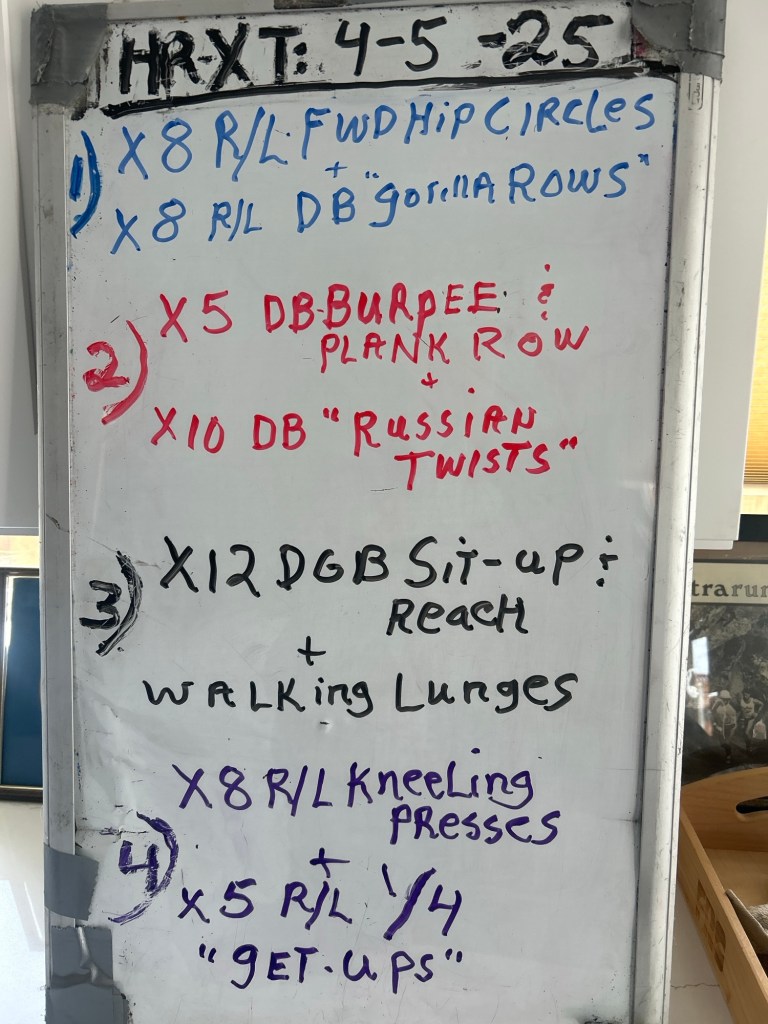 HR-XT: 4-5-25
1) X8 R/L FWD HiP CIRCLes
+
X8 R/L DB "gorillA ROWS"
2) X5 DB BURpEE &
PLANK ROW
+
X10 DB "RUSSIAN
TWISTS"
3) X12 DGB Sit-up &
ReacH
+
WALKing Lunges
4) X8 R/L KneeLing
PResses
+
X5 R/L 1/4
"gET-UPS"
trarum